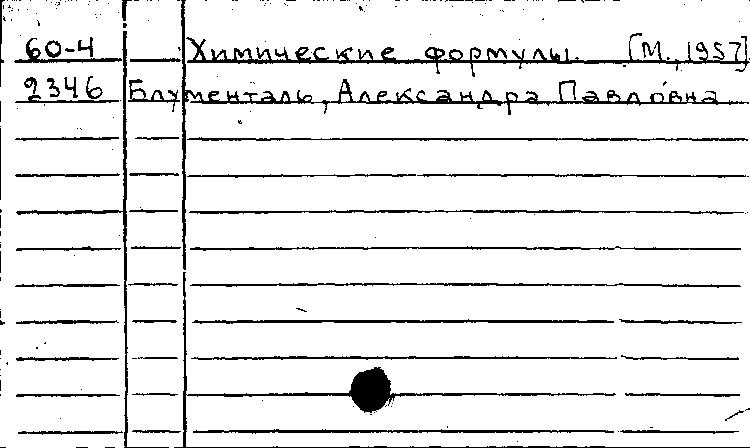 60-4 Химические формулы. [М., 1957]
2346 Блументаль, Александра Павловна